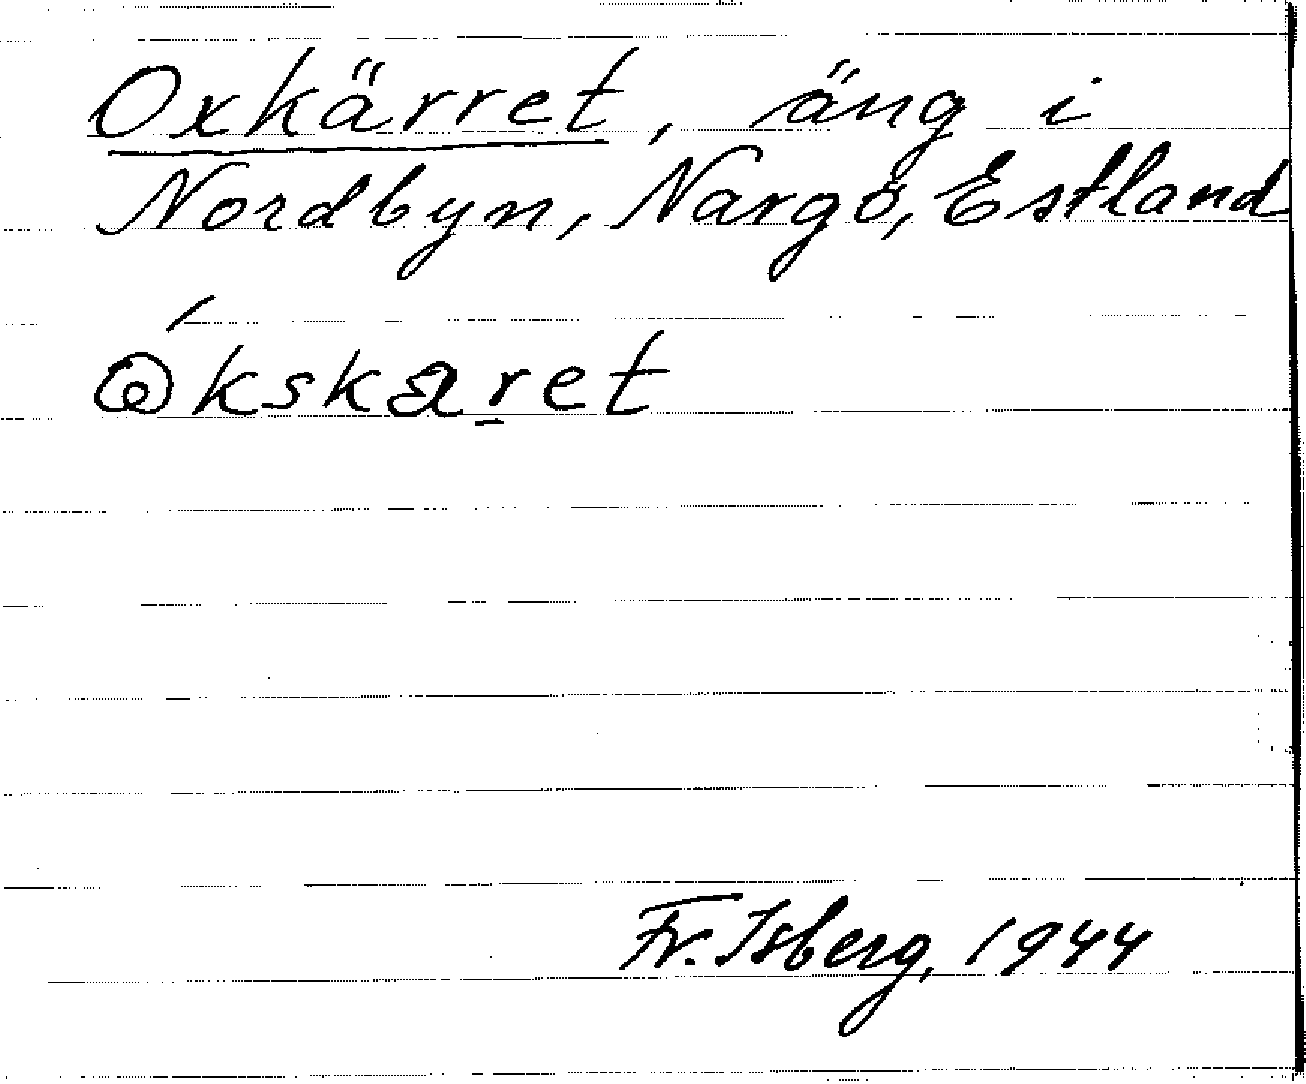 Oxkärret, äng i
Nordbyn, Nargö, Estland
Fr. Isberg, 1944